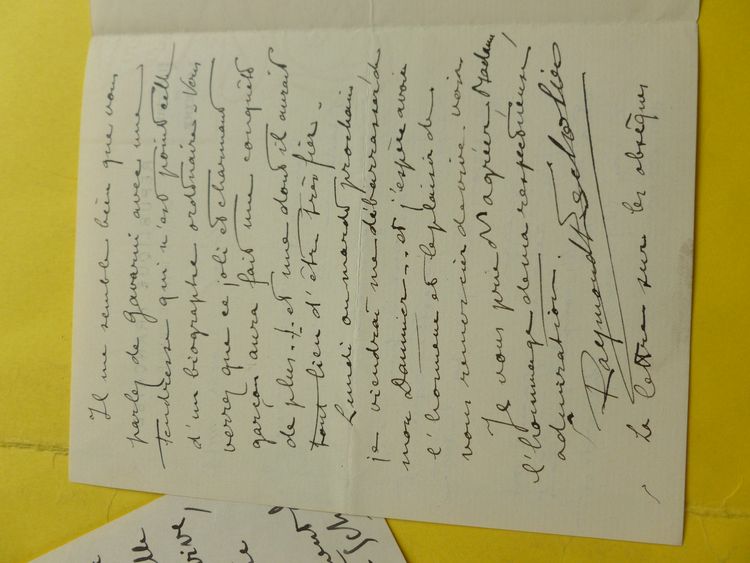 Il me semble bien que vous
parlez de Gavarni avec une
tendresse qui n'est point celle
d'un biographe ordinaire. Vous
verrez que ce joli et charmant
garçon aura fait une conquête
de plus..!. et une dont il aurait
tout lieu d'être très fier.
Lundi ou mardi prochain
je viendrai me débarrasser de
mon Daumier... et j'espère avoir
l'honneur et le plaisir de
vous remercier de vive voix
Je vous prie d'agréer Madame
l'hommage de ma respectueuse
admiration.
Raymond Escholier
la lettre sur les obsèques
lle
vive,
e